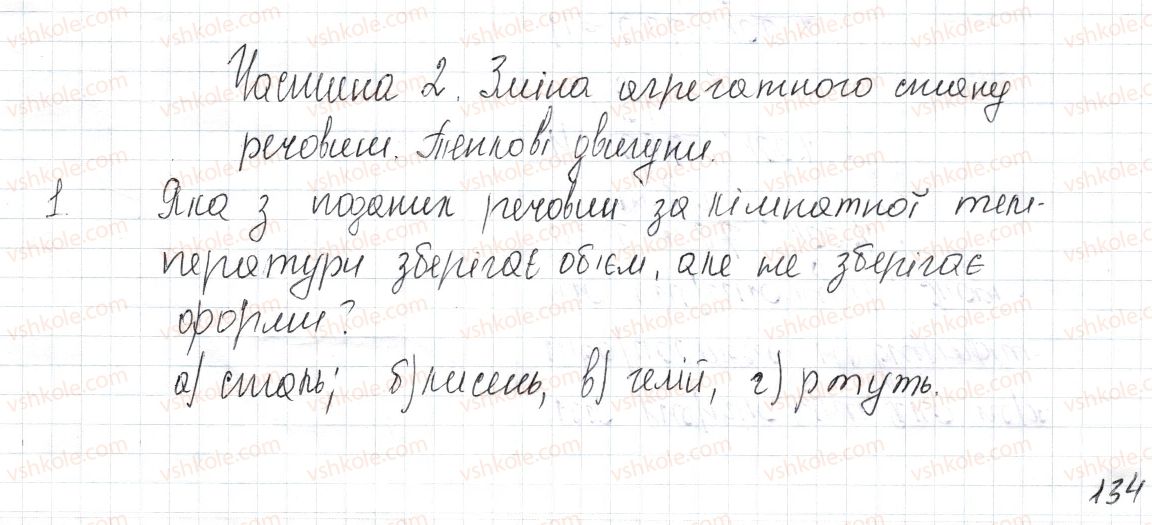 Частина 2. Зміна агрегатного стану
речовин. Теплові двигуни.
1. Яка з поданих речовин за кімнатної тем-
ператури зберігає об'єм, але не зберігає
форми?
а) сталь; б) кисень, в) гелій, г) ртуть.
134